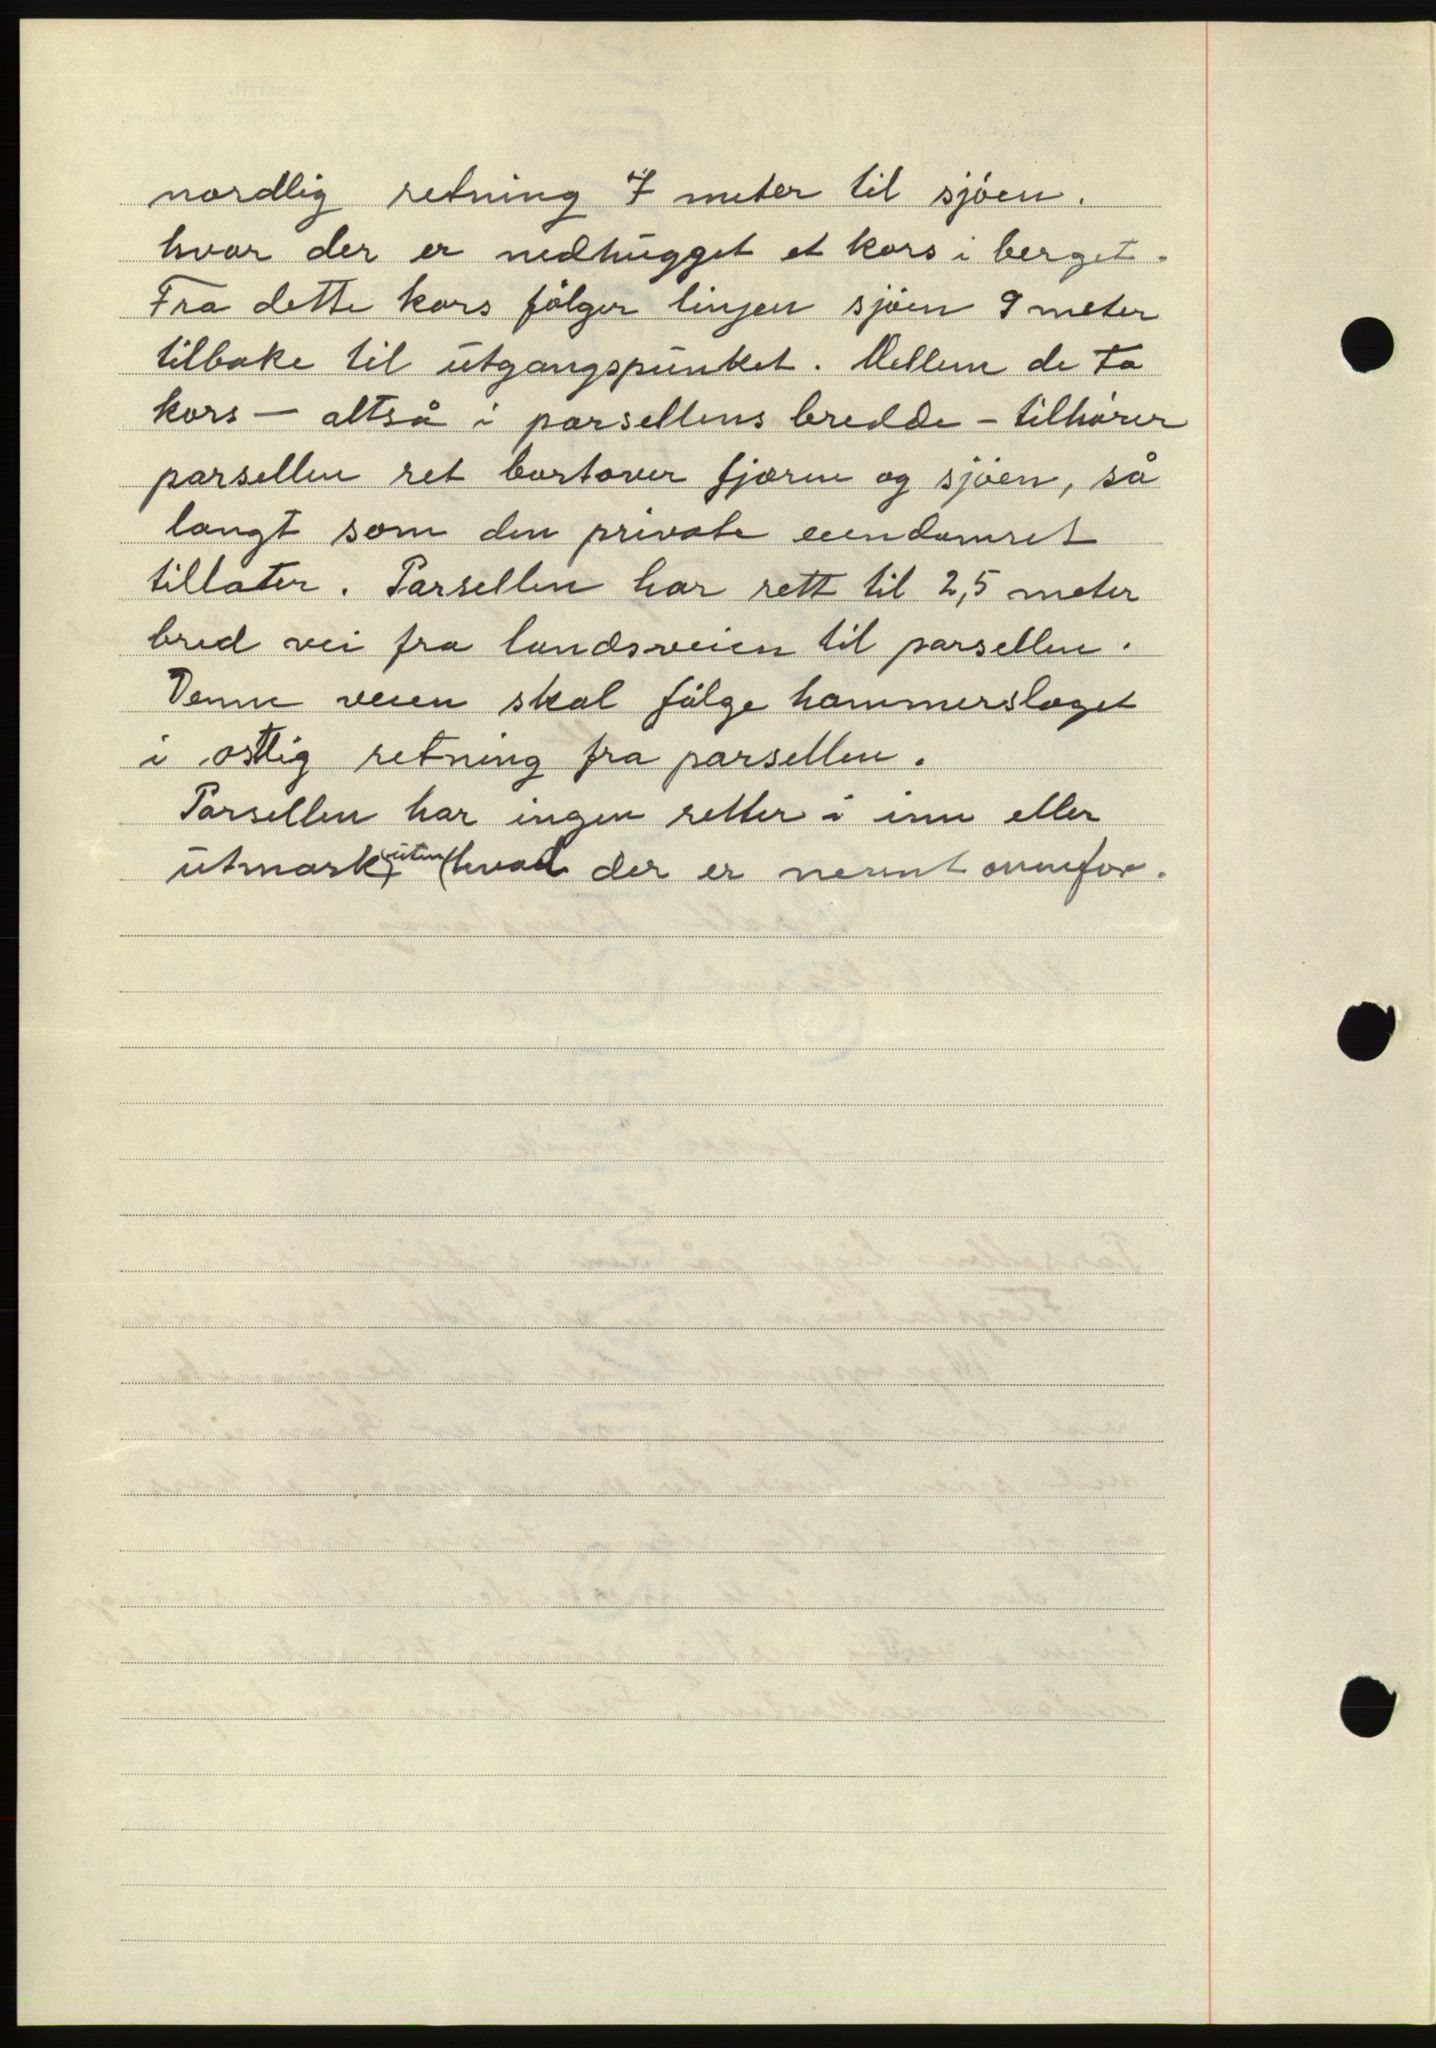 nordlig retning 7 meter til sjöen.
hvor der er nedhugget et kors i berget.
Fra dette kors fölger linjen sjöen 9 meter
tilbake til utgangspunket. Mellem de to
kors – altså i parsellens bredde – tilhörer
parsellen ret bortover fjæren og sjöen, så
langt som den private eiendomsret
tillater. Parsellen har rett til 2,5 meter
bred vei fra landsveien til parsellen.
Denne veien skal fölge hammerslaget
i östlig retning fra parsellen.
Parsellen har ingen retter i inn eller
utmark, uten hvad der er nevnt ovenfor.